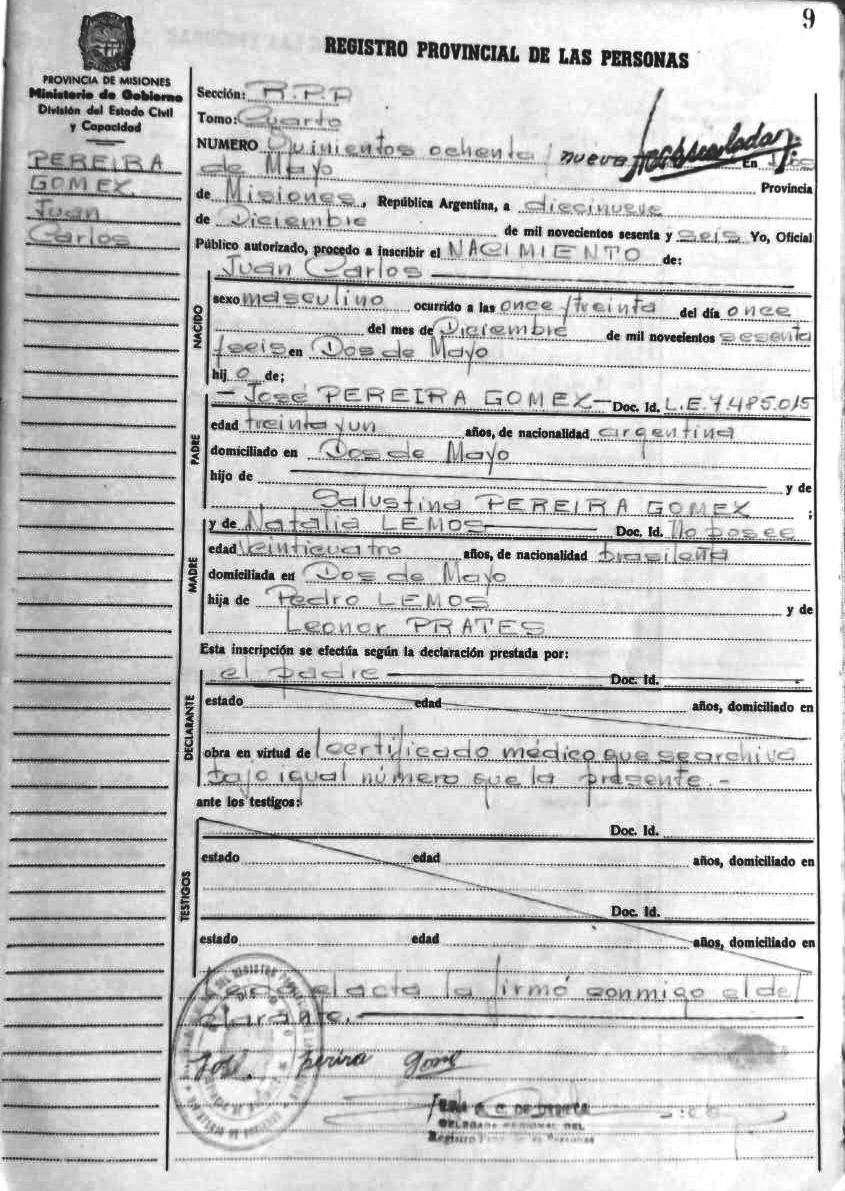 9
REGISTRO PROVINCIAL DE LAS PERSONAS
PROVINCIA DE MISIONES
Ministerio de Gobierno
División del Estado Civil
y Capacidad
PEREIRA
GOMEX
Juan
Carlos
Sección: R.P.P
Tomo: Cuarto
NUMERO Quinientos ochenta / nueve En Dos
de Mayo Provincia
de Misiones, República Argentina, a diecinueve
de Diciembre de mil novecientos sesenta y seis Yo, Oficial
Público autorizado, procedo a inscribir el NACIMIENTO de:
NACIDO
Juan Carlos
sexo masculino ocurrido a las once / treinta del día once
del mes de Diciembre de mil novecientos sesenta
/seis en Dos de Mayo
hij o de;
PADRE
- José PEREIRA GOMEX - Doc. Id. L.E. 7.485.015
edad treinta y un años, de nacionalidad argentina
domiciliado en Dos de Mayo
hijo de y de
Salustina PEREIRA GOMEX ;
MADRE
y de Natalia LEMOS Doc. Id. No posee
edad veinticuatro años, de nacionalidad brasileña
domiciliada en Dos de Mayo
hija de Pedro LEMOS y de
Leonor PRATES
Esta inscripción se efectúa según la declaración prestada por:
DECLARANTE
el padre Doc. Id.
estado edad años, domiciliado en
obra en virtud de / certificado médico que se archiva
bajo igual número que la presente.-
ante los testigos:
TESTIGOS
Doc. Id.
estado edad años, domiciliado en
Doc. Id.
estado edad años, domiciliado en
el acta la firmó conmigo el de
clarante.
José perira Gomé
DELEGADA REGIONAL DEL